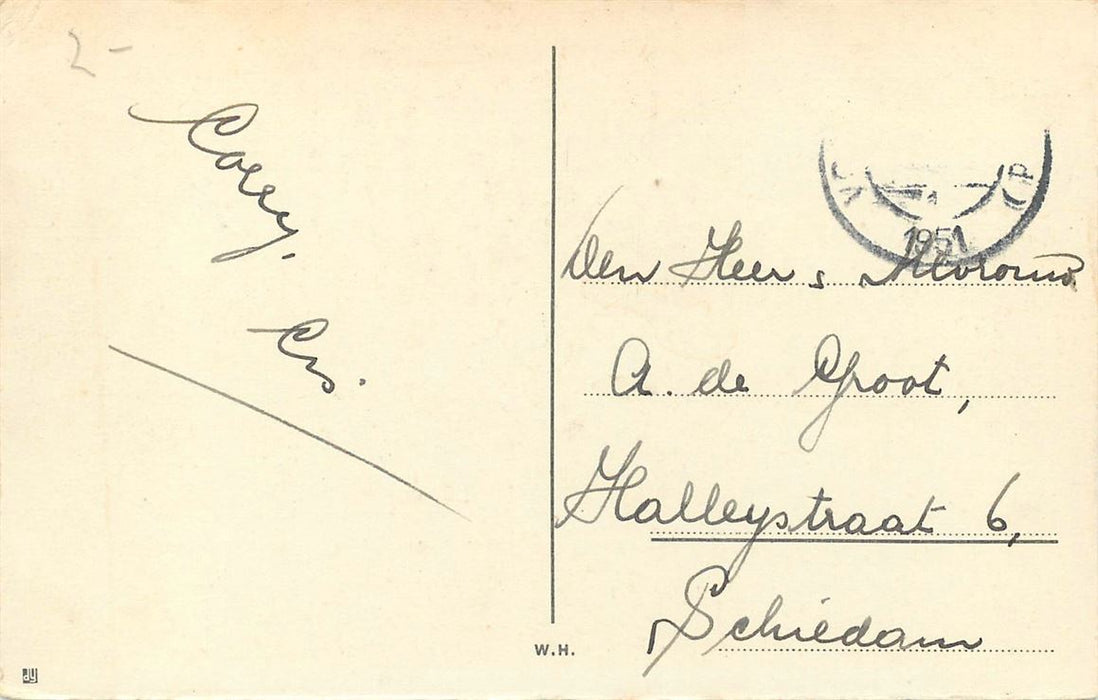 2-
Corry.
Cris.
1951
Den Heer s Mevrouw
A. de Groot,
Halleystraat 6,
Schiedam
W.H.